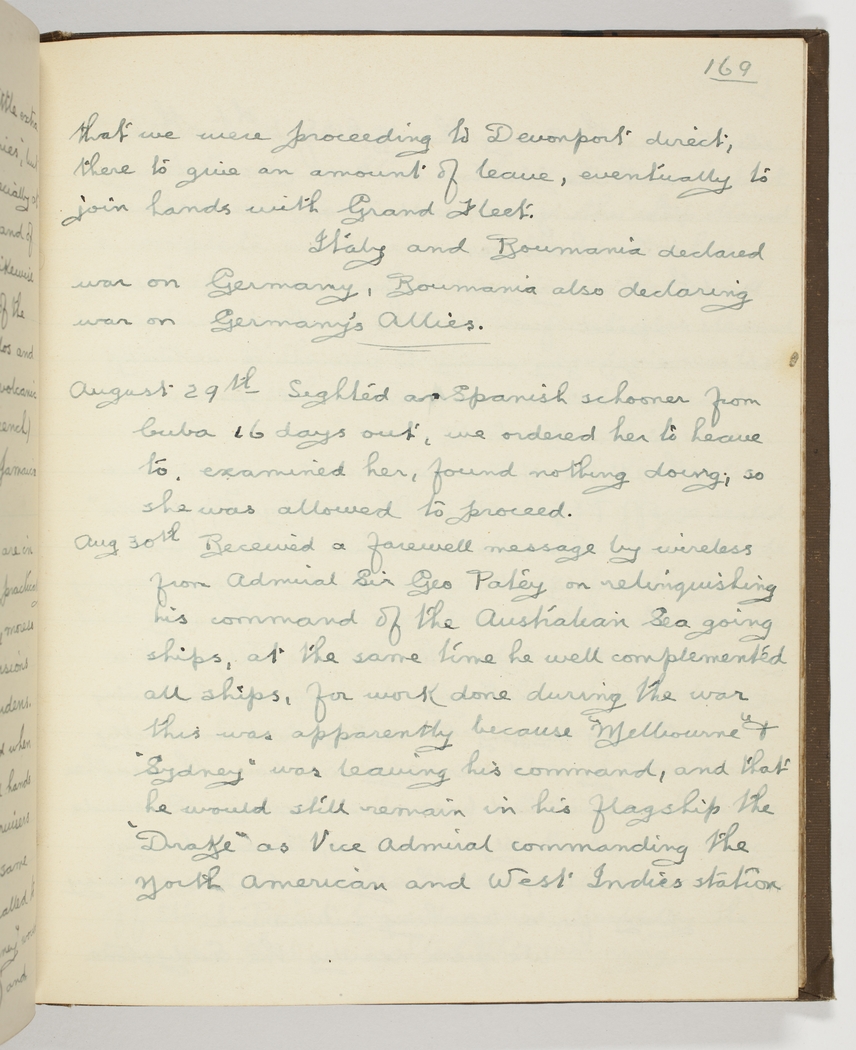 169
that we were proceeding to Devonport direct,
there to give an amount of leave, eventually to
join hands with Grand Fleet.
Italy and Roumania declared
war on Germany, Roumania also declaring
war on Germany's Allies.
August 29th Sighted a Spanish schooner from
Cuba 16 days out, we ordered her to heave
to, examined her, found nothing doing, so
she was allowed to proceed.
Aug 30th Received a farewell message by wireless
from Admiral Sir Geo Patéy on relinquishing
his command of the Australian Sea going
ships, at the same time he well complemented
all ships, for work done during the war
this was apparently because "Melbourne" &
"Sydney" was leaving his command, and that
he would still remain in his flagship the
"Drake" as Vice Admiral commanding the
North American and West Indies station
ttle extra
and of
likewise
of the
los and
volcanic
Jamaica
are in
when
hands
same
and